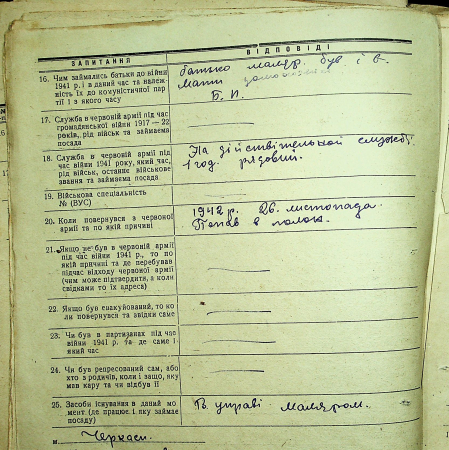 ЗАПИТАННЯ
ВІДПОВІДІ
16. Чим займались батьки до війни
1941 р. і в даний час та належ-
ність їх до комуністичної пар
тії і з якого часу
батько маляр. був і є.
Мати
Б. П.
17. Служба в червоній армії під час
громадянської війни 1917 — 22
років, рід військ та займаєма
посада
18. Служба в червоній армії під
час війни 1941 року, який час,
рід військ, останнє військове
звання та займаєма посада
На дійствітельной службі
1 год. рядовим.
19. Військова спеціальність
№ (ВУС)
20. Коли повернувся з червоної
армії та по якій причині
1942 р. 26. листопада.
Попав в полон.
21. Якщо не був в червоній армії
під час війни 1941 р., то по
якій причині та де перебував
підчас відходу червоної армії
(чим може підтвердити, а коли
свідками то їх адреса)
22. Якщо був евакуйований, то ко
ли повернувся та звідки саме
23. Чи був в партизанах під час
війни 1941 р. та де саме і
який час
24. Чи був репресований сам, або
хто з родичів, коли і защо, яку
мав кару та чи відбув її
25. Засоби існування в даний мо
мент (де працює і яку займає
посаду)
В. управі маляром.
м. Черкаси.